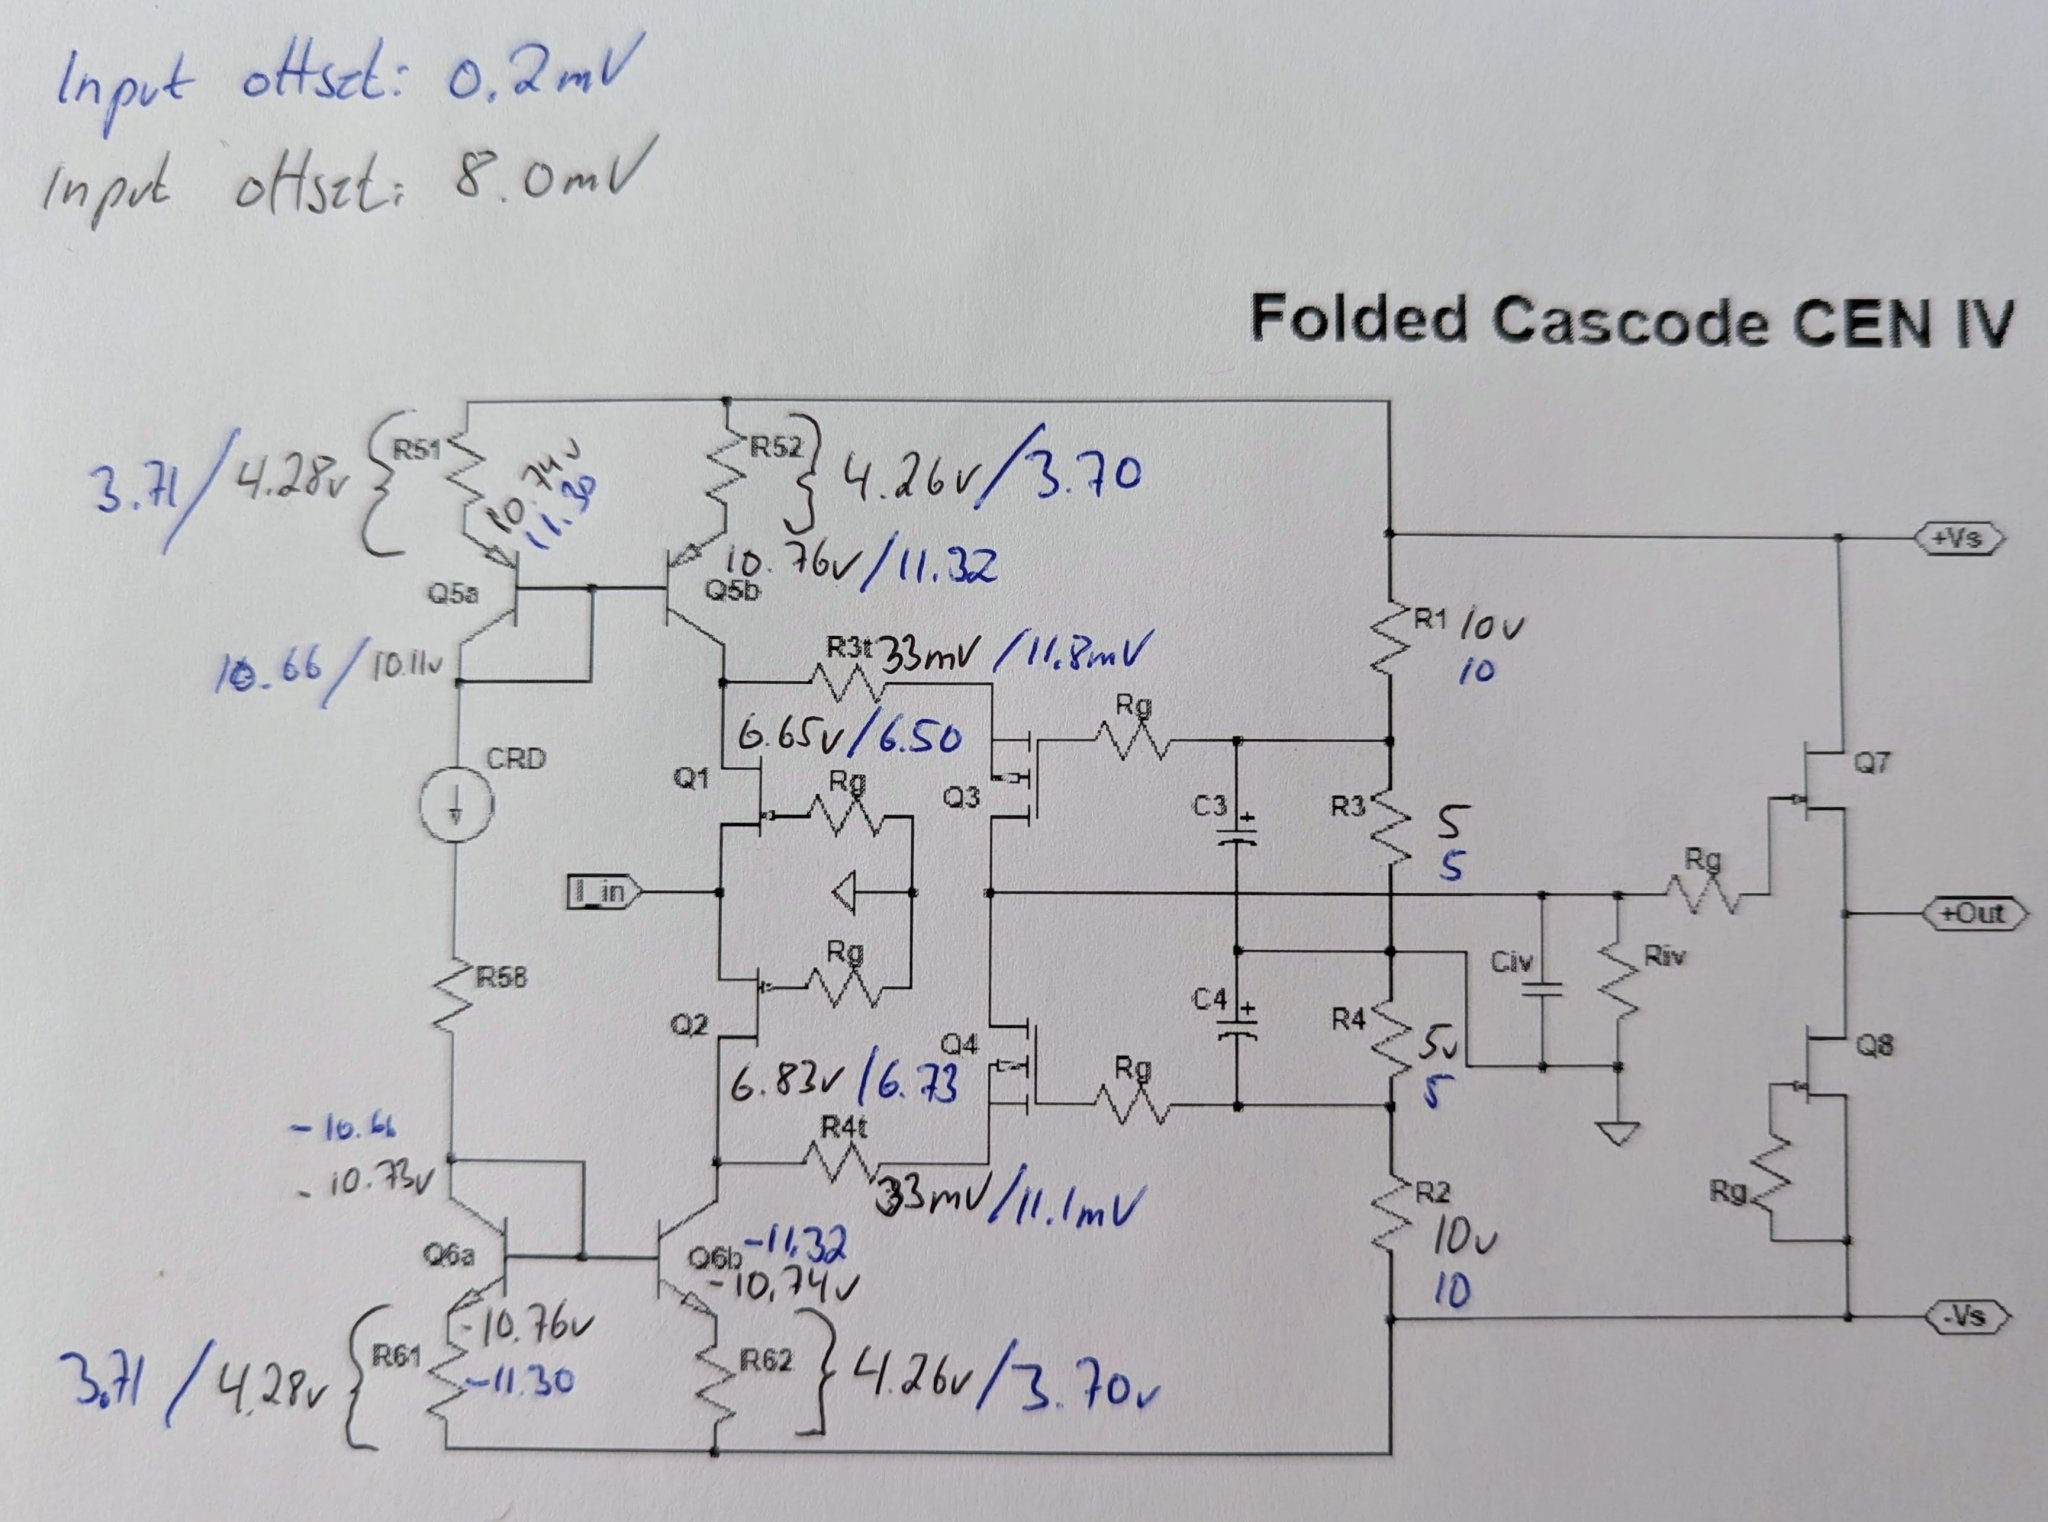 Input offset: 0.2mV
Input offset: 8.0mV
Folded Cascode CEN IV
3.71 / 4.28v
R51
10.74v
11.30
R52
4.26v / 3.70
Q5a
Q5b
10.76v / 11.32
+Vs
10.66 / 10.11v
R3t
33mV / 11.8mV
R1
10v
10
CRD
6.65v / 6.50
Rg
Q1
Rg
Q3
C3
+
R3
5
5
Q7
I_in
Rg
+Out
R58
Rg
Q2
C4
+
R4
5v
5
Civ
Riv
Q4
Rg
Q8
6.83v / 6.73
R4t
33mV / 11.1mV
- 10.66
- 10.73v
R2
10v
10
Rg
Q6a
Q6b
-11.32
-10.74v
-10.76v
-11.30
-Vs
3.71 / 4.28v
R61
R62
4.26v / 3.70v